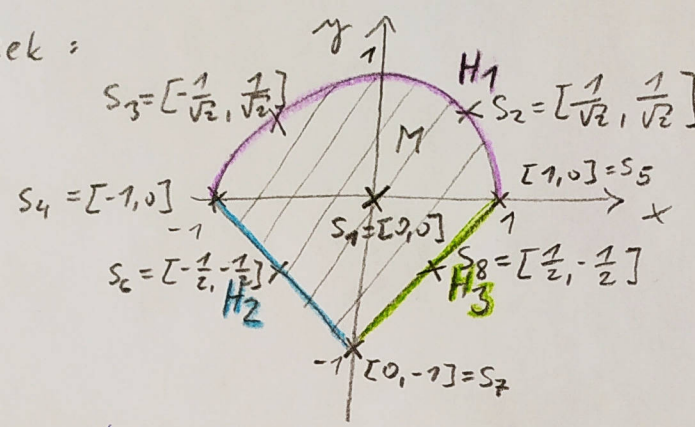 ek :
y
1
H1
S3=[-1/√2, 1/√2]
S2=[1/√2, 1/√2]
M
[1,0]=S5
S4=[-1,0]
-1
S1=[0,0]
1
x
S6=[-1/2,-1/2]
S8=[1/2,-1/2]
H2
H3
-1
[0,-1]=S7